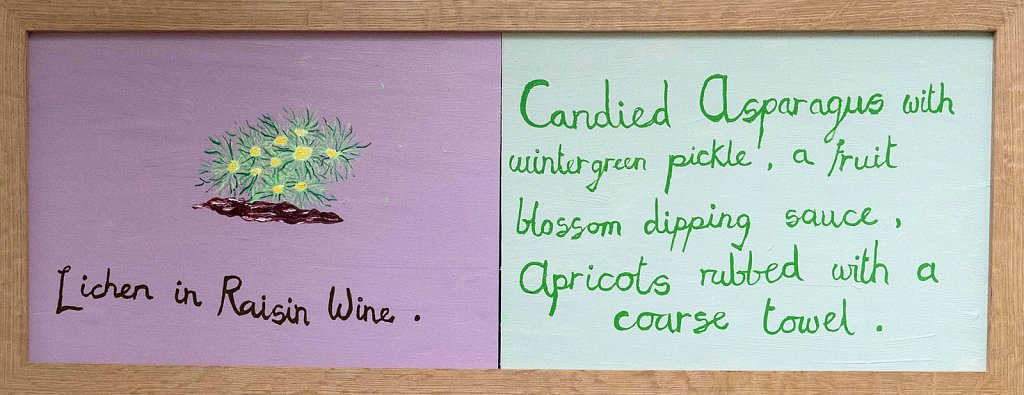 Lichen in Raisin Wine.
Candied Asparagus with
wintergreen pickle, a fruit
blossom dipping sauce,
Apricots rubbed with a
coarse towel.